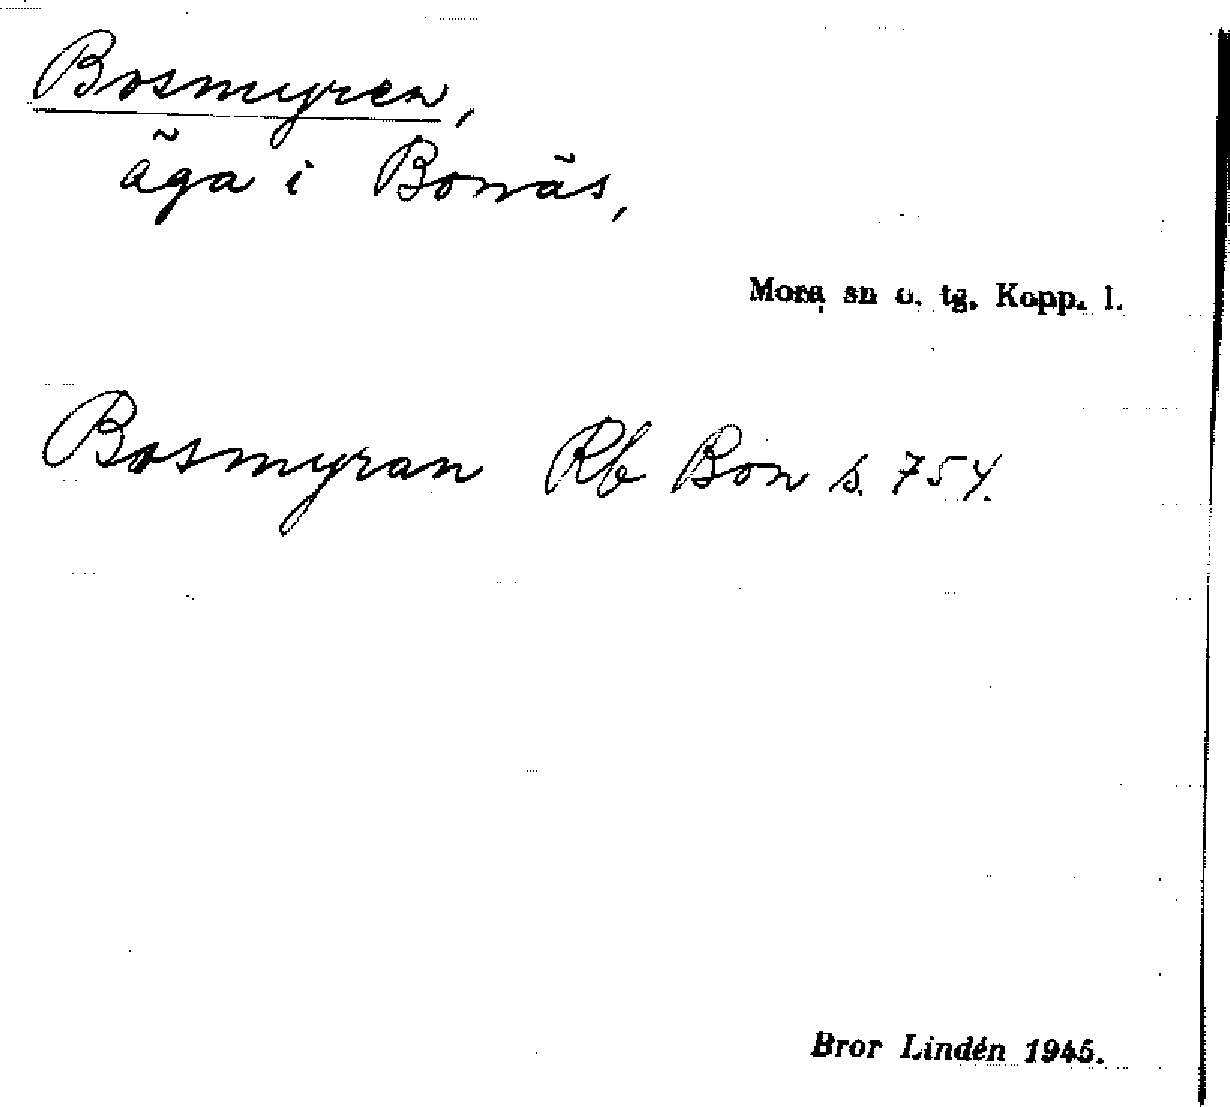 Bosmyren,
äga i Bonäs,
Mora sn o. tg. Kopp. l.
Bosmyran Rb Bon s. 754.
Bror Lindén 1945.